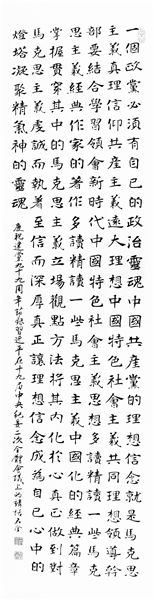 一個政黨必須有自己的政治靈魂中國共產黨的理想信念就是馬克思
主義真理信仰共產主義遠大理想中國特色社會主義共同理想領導幹
部要結合學習領會新時代中國特色社會主義思想多讀精讀一些馬
克思主義經典作家的著作多讀精讀一些馬克思主義的經典篇章
掌握貫穿其中的馬克思主義立場觀點方法將其內化於心真正做到對
馬克思主義虔誠而執著至信而深厚真正讓理想信念成為自己心中的
燈塔凝聚精氣神的靈魂
慶祝建黨九十九周年節錄習近平在十九届中央紀委二次全體會議上的講話